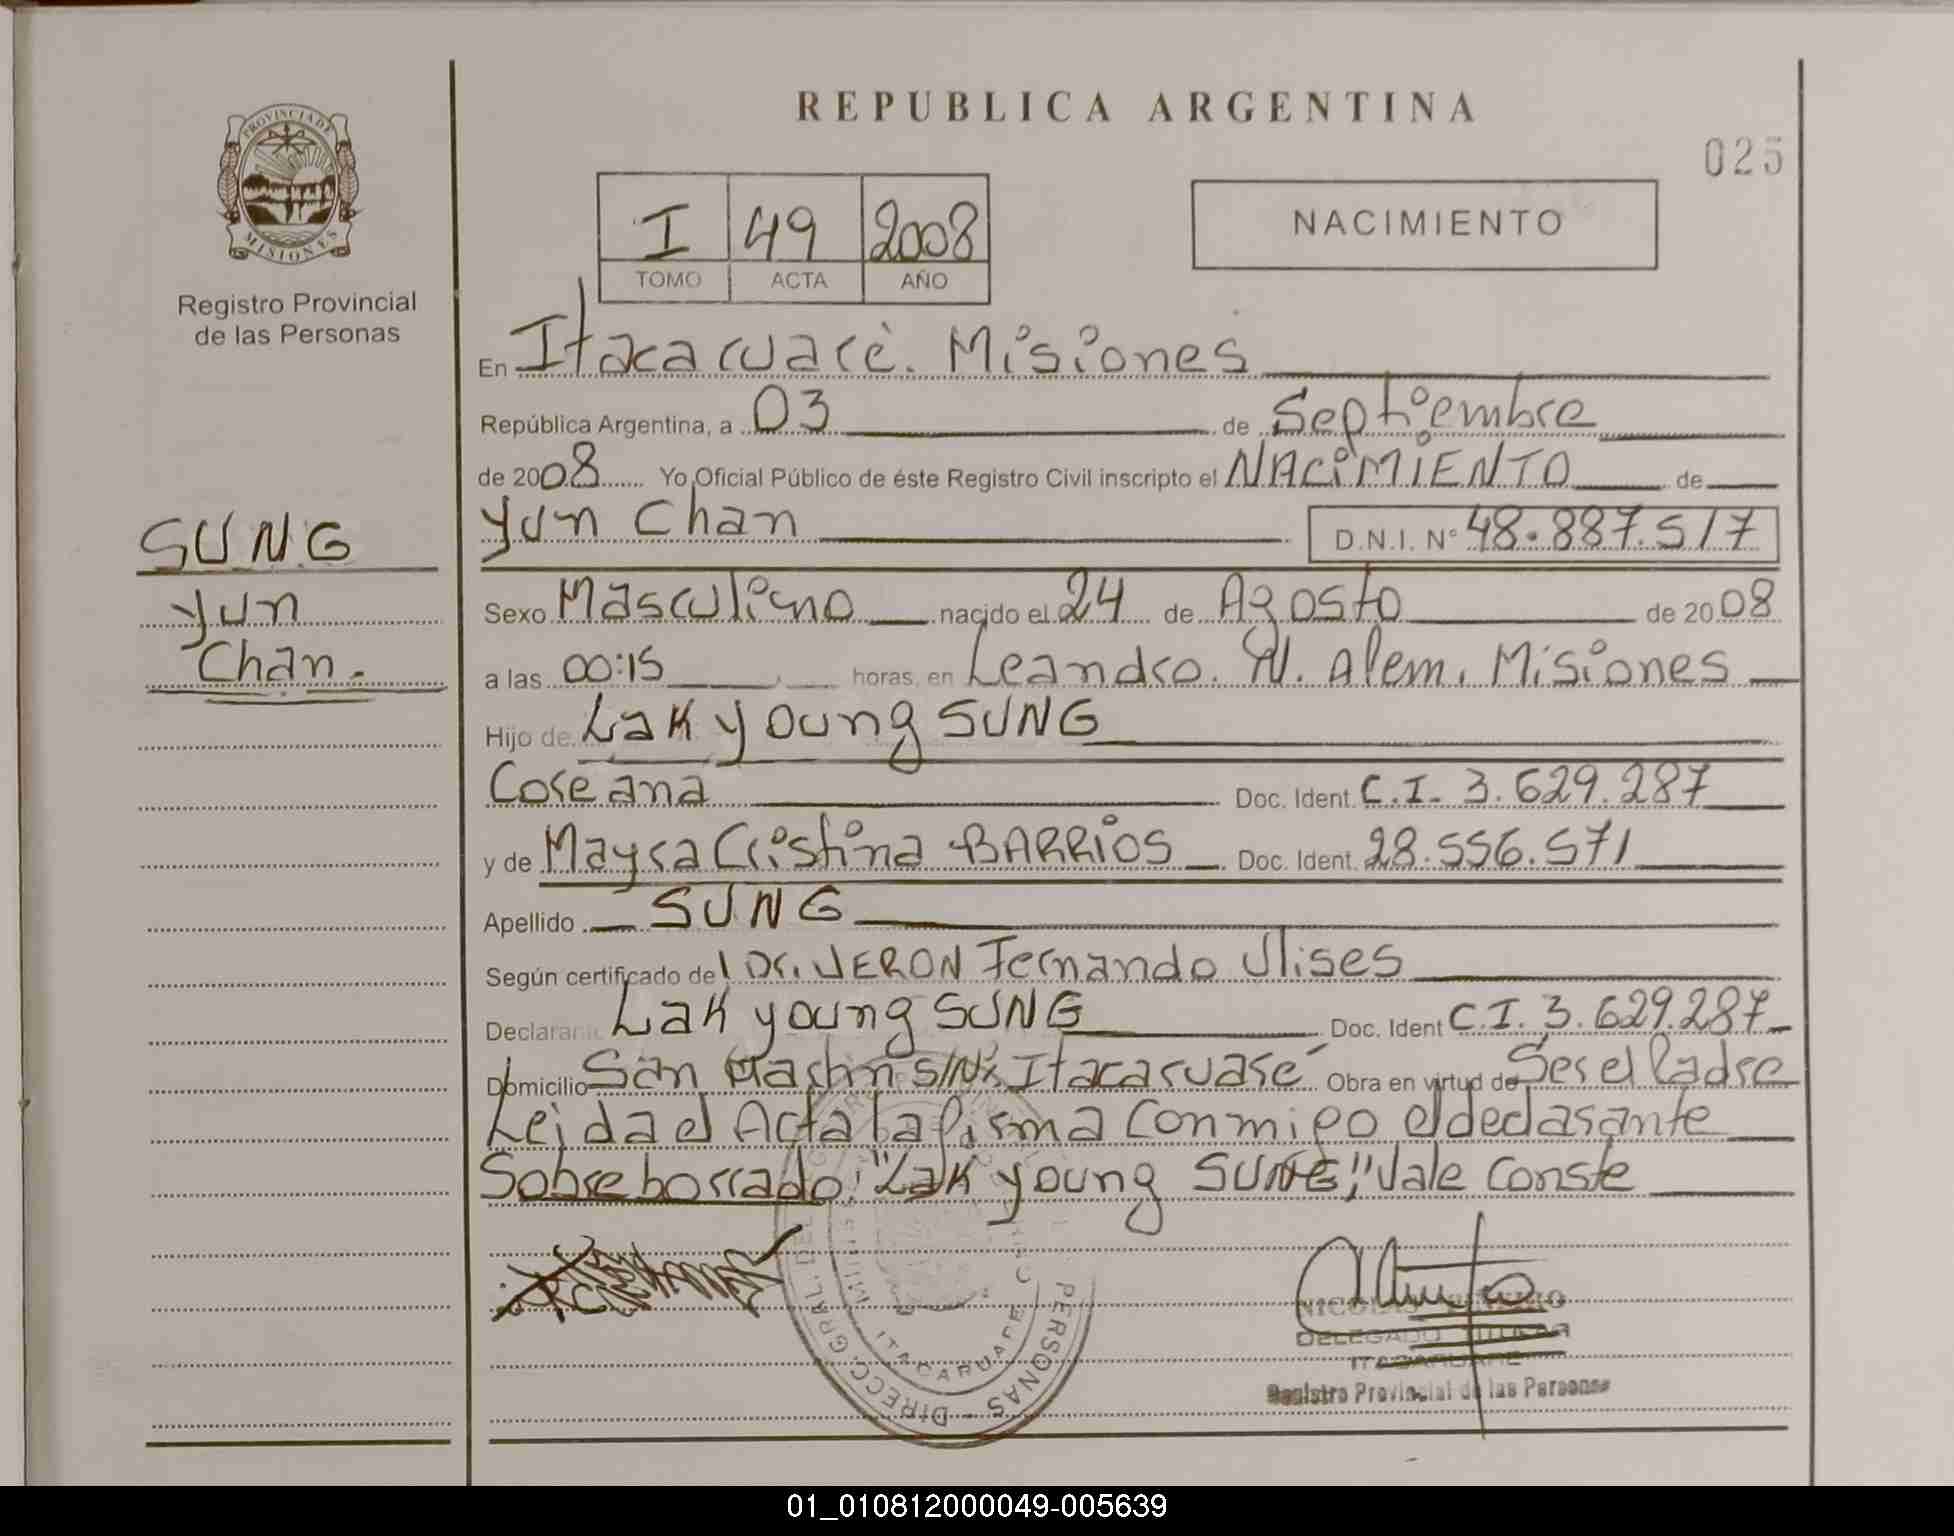 REPUBLICA ARGENTINA
025
PROVINCIA DE
MISIONES
Registro Provincial
de las Personas
I 49 2008
TOMO ACTA AÑO
NACIMIENTO
En Itacaruaré. Misiones
República Argentina, a 03 de Septiembre
de 2008 Yo Oficial Público de éste Registro Civil inscripto el NACIMIENTO de
SUNG
Yun
Chan.
Yun Chan D.N.I. Nº 48.887.517
Sexo Masculino nacido el 24 de Agosto de 2008
a las 00:15 horas, en Leandro. N. Alem. Misiones
Hijo de Lak young SUNG
Coreana Doc. Ident. C.I. 3.629.287
y de Mayra Cristina BARRIOS Doc. Ident. 28.556.571
Apellido SUNG
Según certificado del Dr. VERON Fernando Ulises
Declarante Lak young SUNG Doc. Ident C.I. 3.629.287
Domicilio San Martin S/Nº. Itacaruaré Obra en virtud de Ser el Padre
Leida el Acta la firma conmigo el declarante
Sobreborrado: "Lak young SUNG" Vale Conste
DIRECC. GRAL. DEL PERSONAS
MISIONES
ITACARUARE
DELEGADO TITULAR
ITACARUARE
Registro Provincial de las Personas
01_010812000049-005639